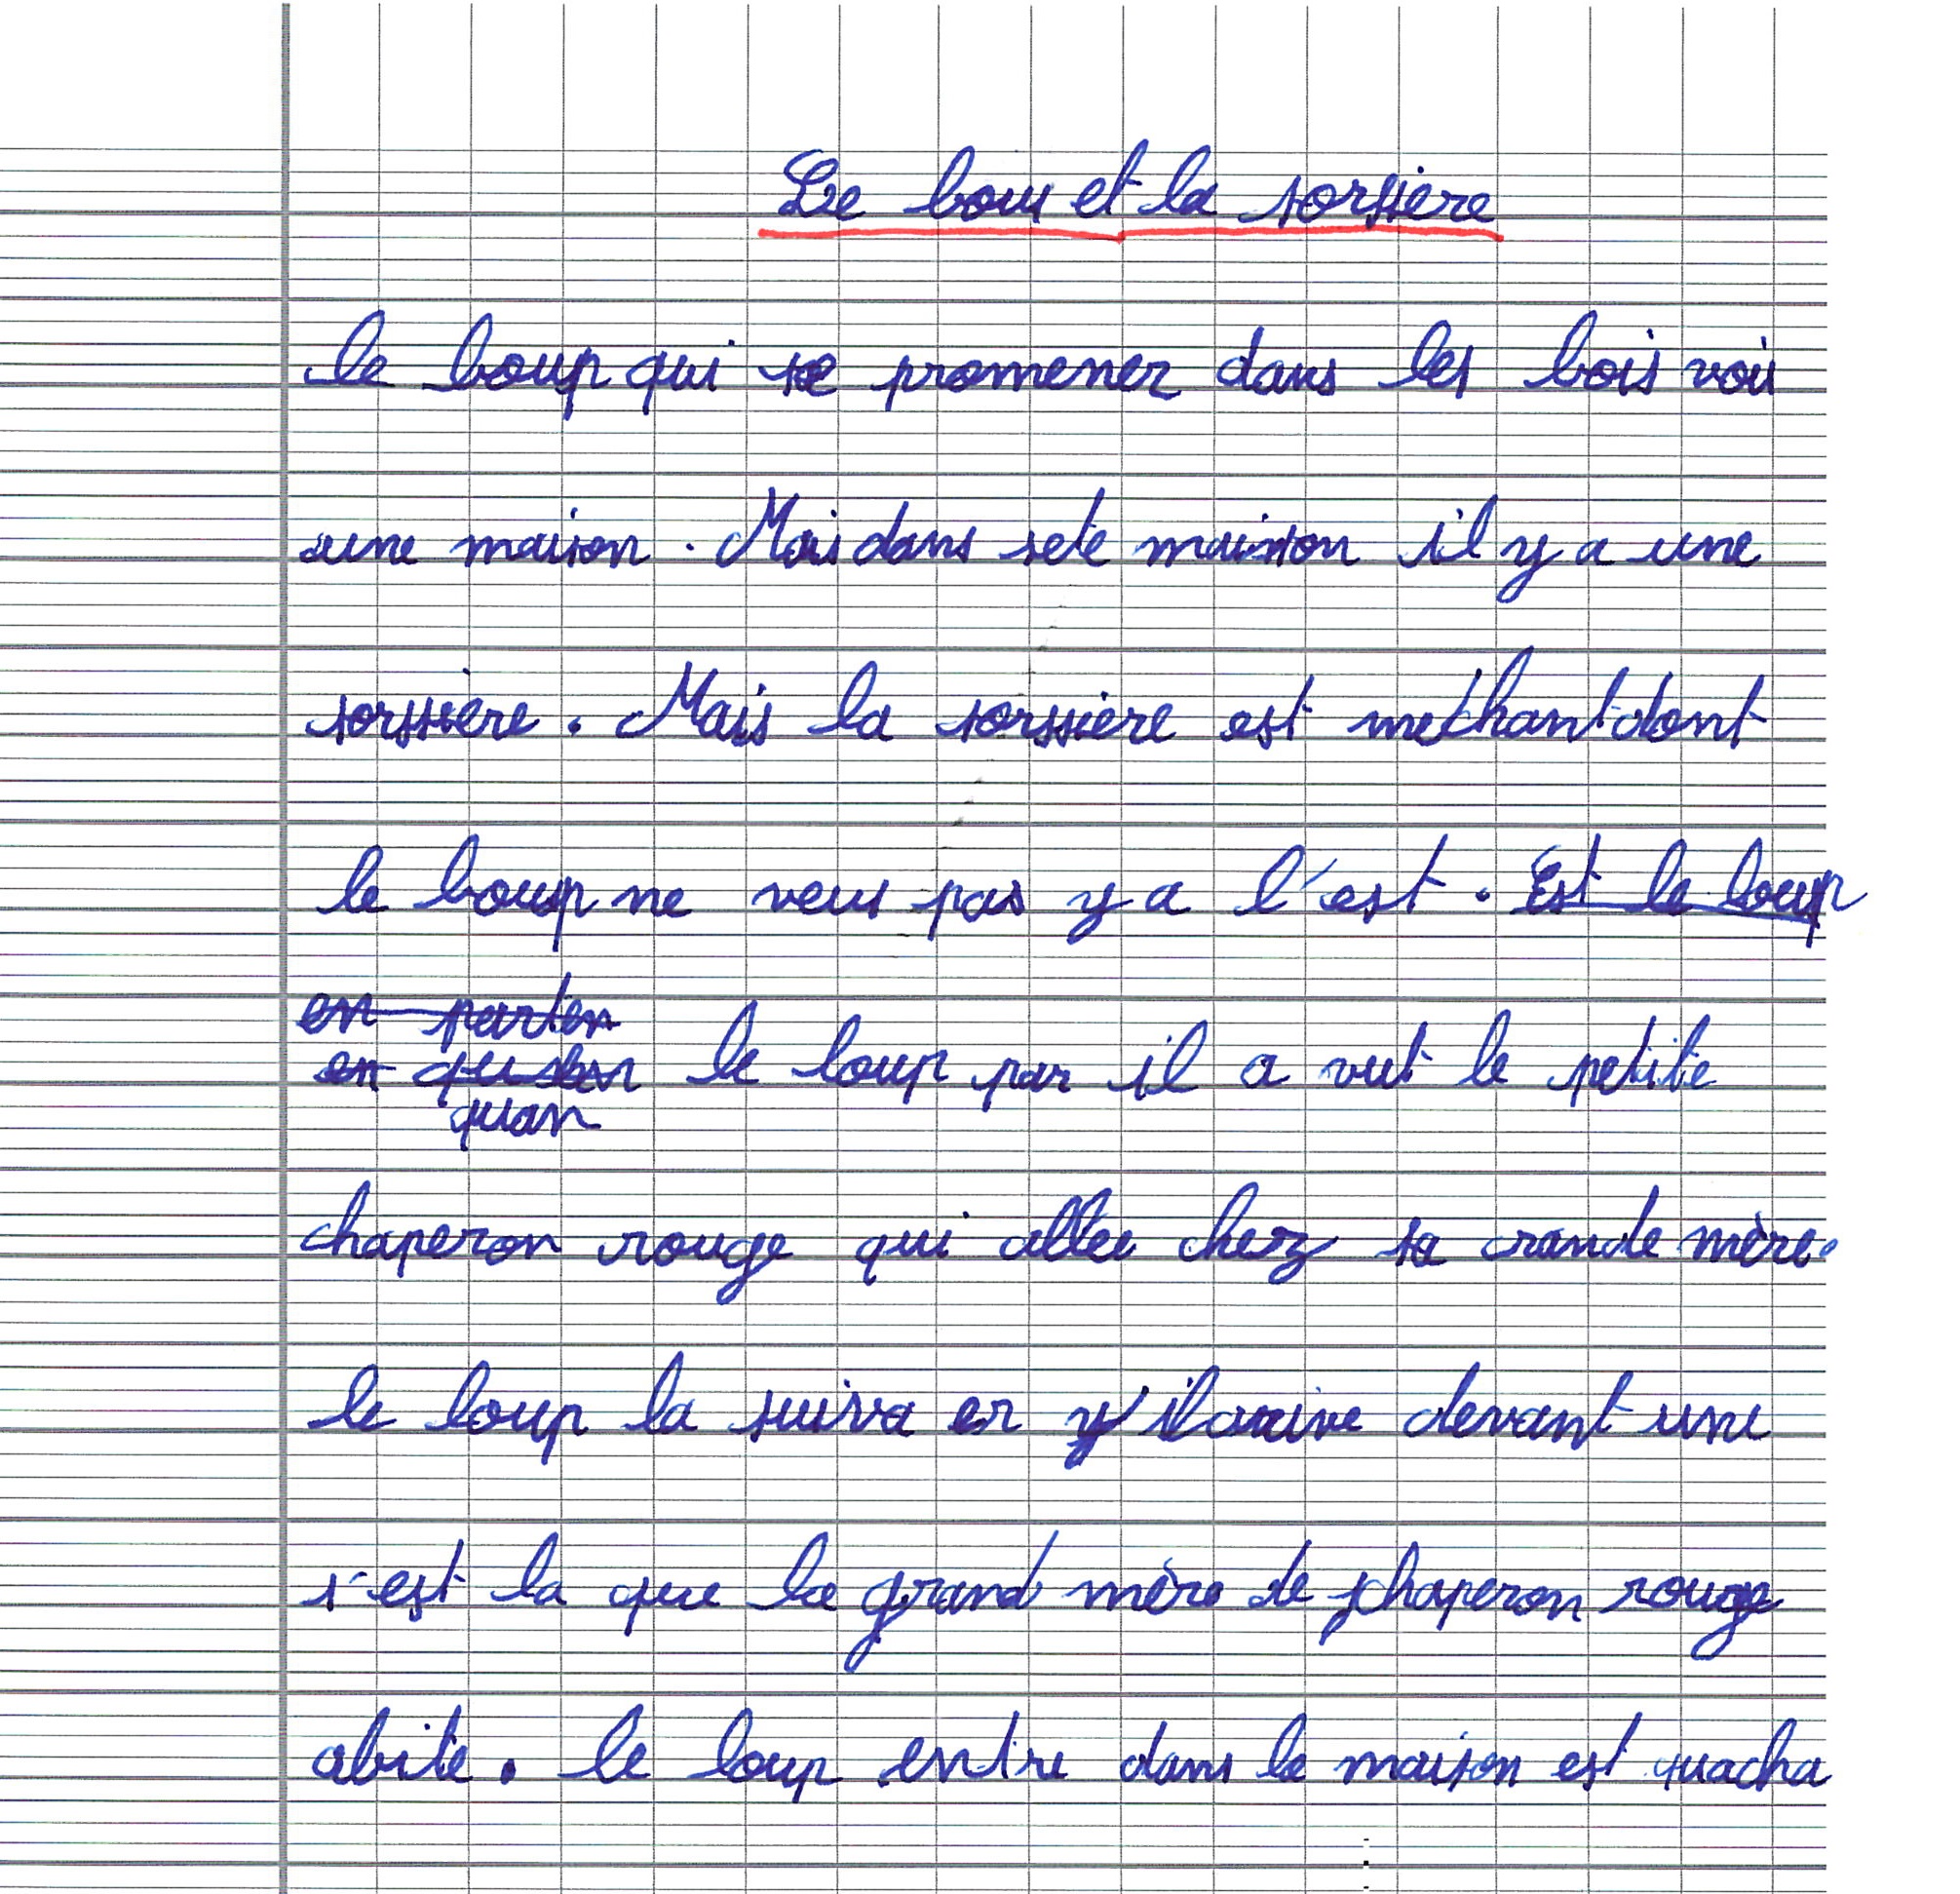 Le lou et la sorsière
le loup qui se promener dans les bois voi
une maison. Mais dans sete maison il y a une
sorssière. Mais la sorssière est mechant dont
le loup ne veus pas y a l'est. Est le loup
en parten
en le loup par il a vut le petite
quan
chaperon rouge qui allee chez sa crande mère.
le loup la suiva er y il arive devant une
s'est la que la grand mère de chaperon rouge
abite. le loup entre dans la maison est quacha